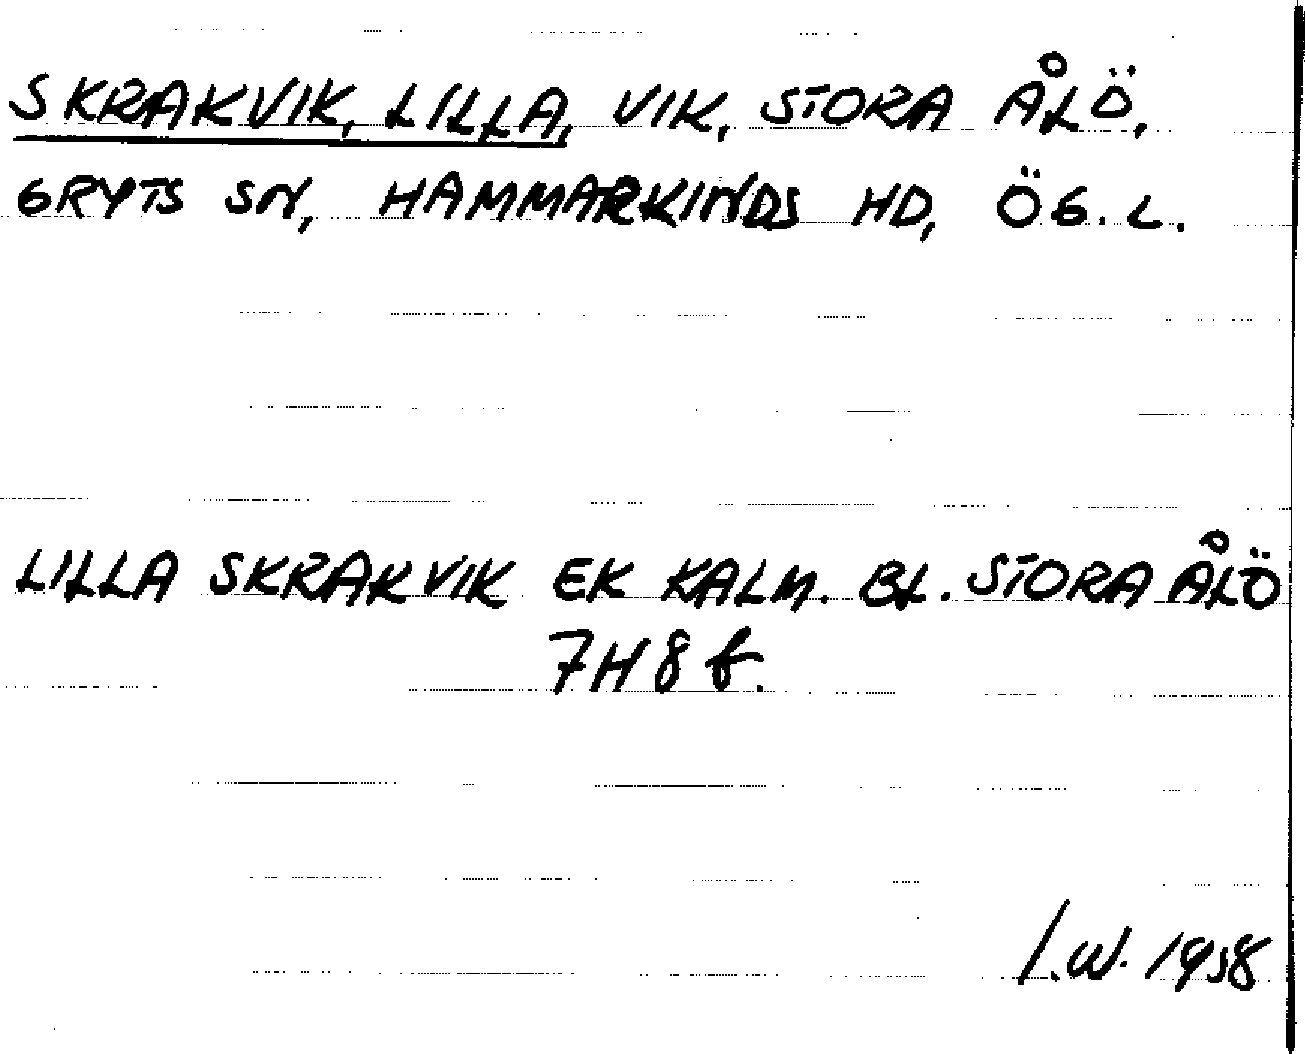 SKRAKVIK, LILLA, VIK, STORA ÅLÖ,
GRYTS SN, HAMMARKINDS HD, ÖG. L.
LILLA SKRAKVIK EK KALM. BL. STORA ÅLÖ
7H8f.
I.W. 1958